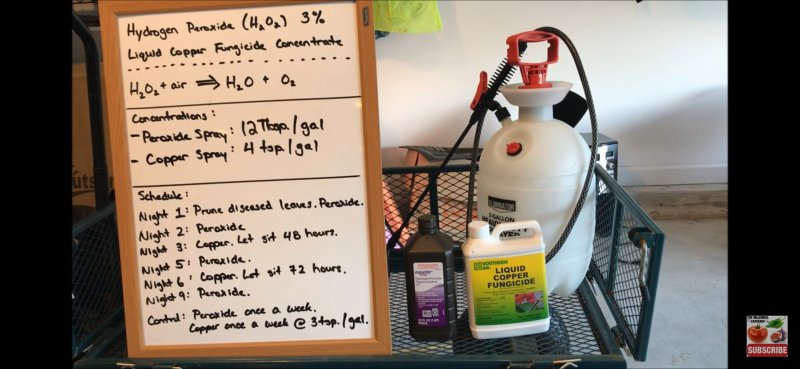 Hydrogen Peroxide (H₂O₂) 3%
Liquid Copper Fungicide Concentrate
H₂O₂ + air ⇒ H₂O + O₂
Concentrations:
- Peroxide Spray: 12 Tbsp./gal
- Copper Spray: 4 tsp./gal
Schedule:
Night 1: Prune diseased leaves. Peroxide.
Night 2: Peroxide
Night 3: Copper. Let sit 48 hours.
Night 5: Peroxide.
Night 6: Copper. Let sit 72 hours.
Night 9: Peroxide.
Control: Peroxide once a week.
Copper once a week @ 3 tsp./gal.
ELIMINATOR
GALLON
SOUTHERN
AG
LIQUID
COPPER
FUNGICIDE
SUBSCRIBE